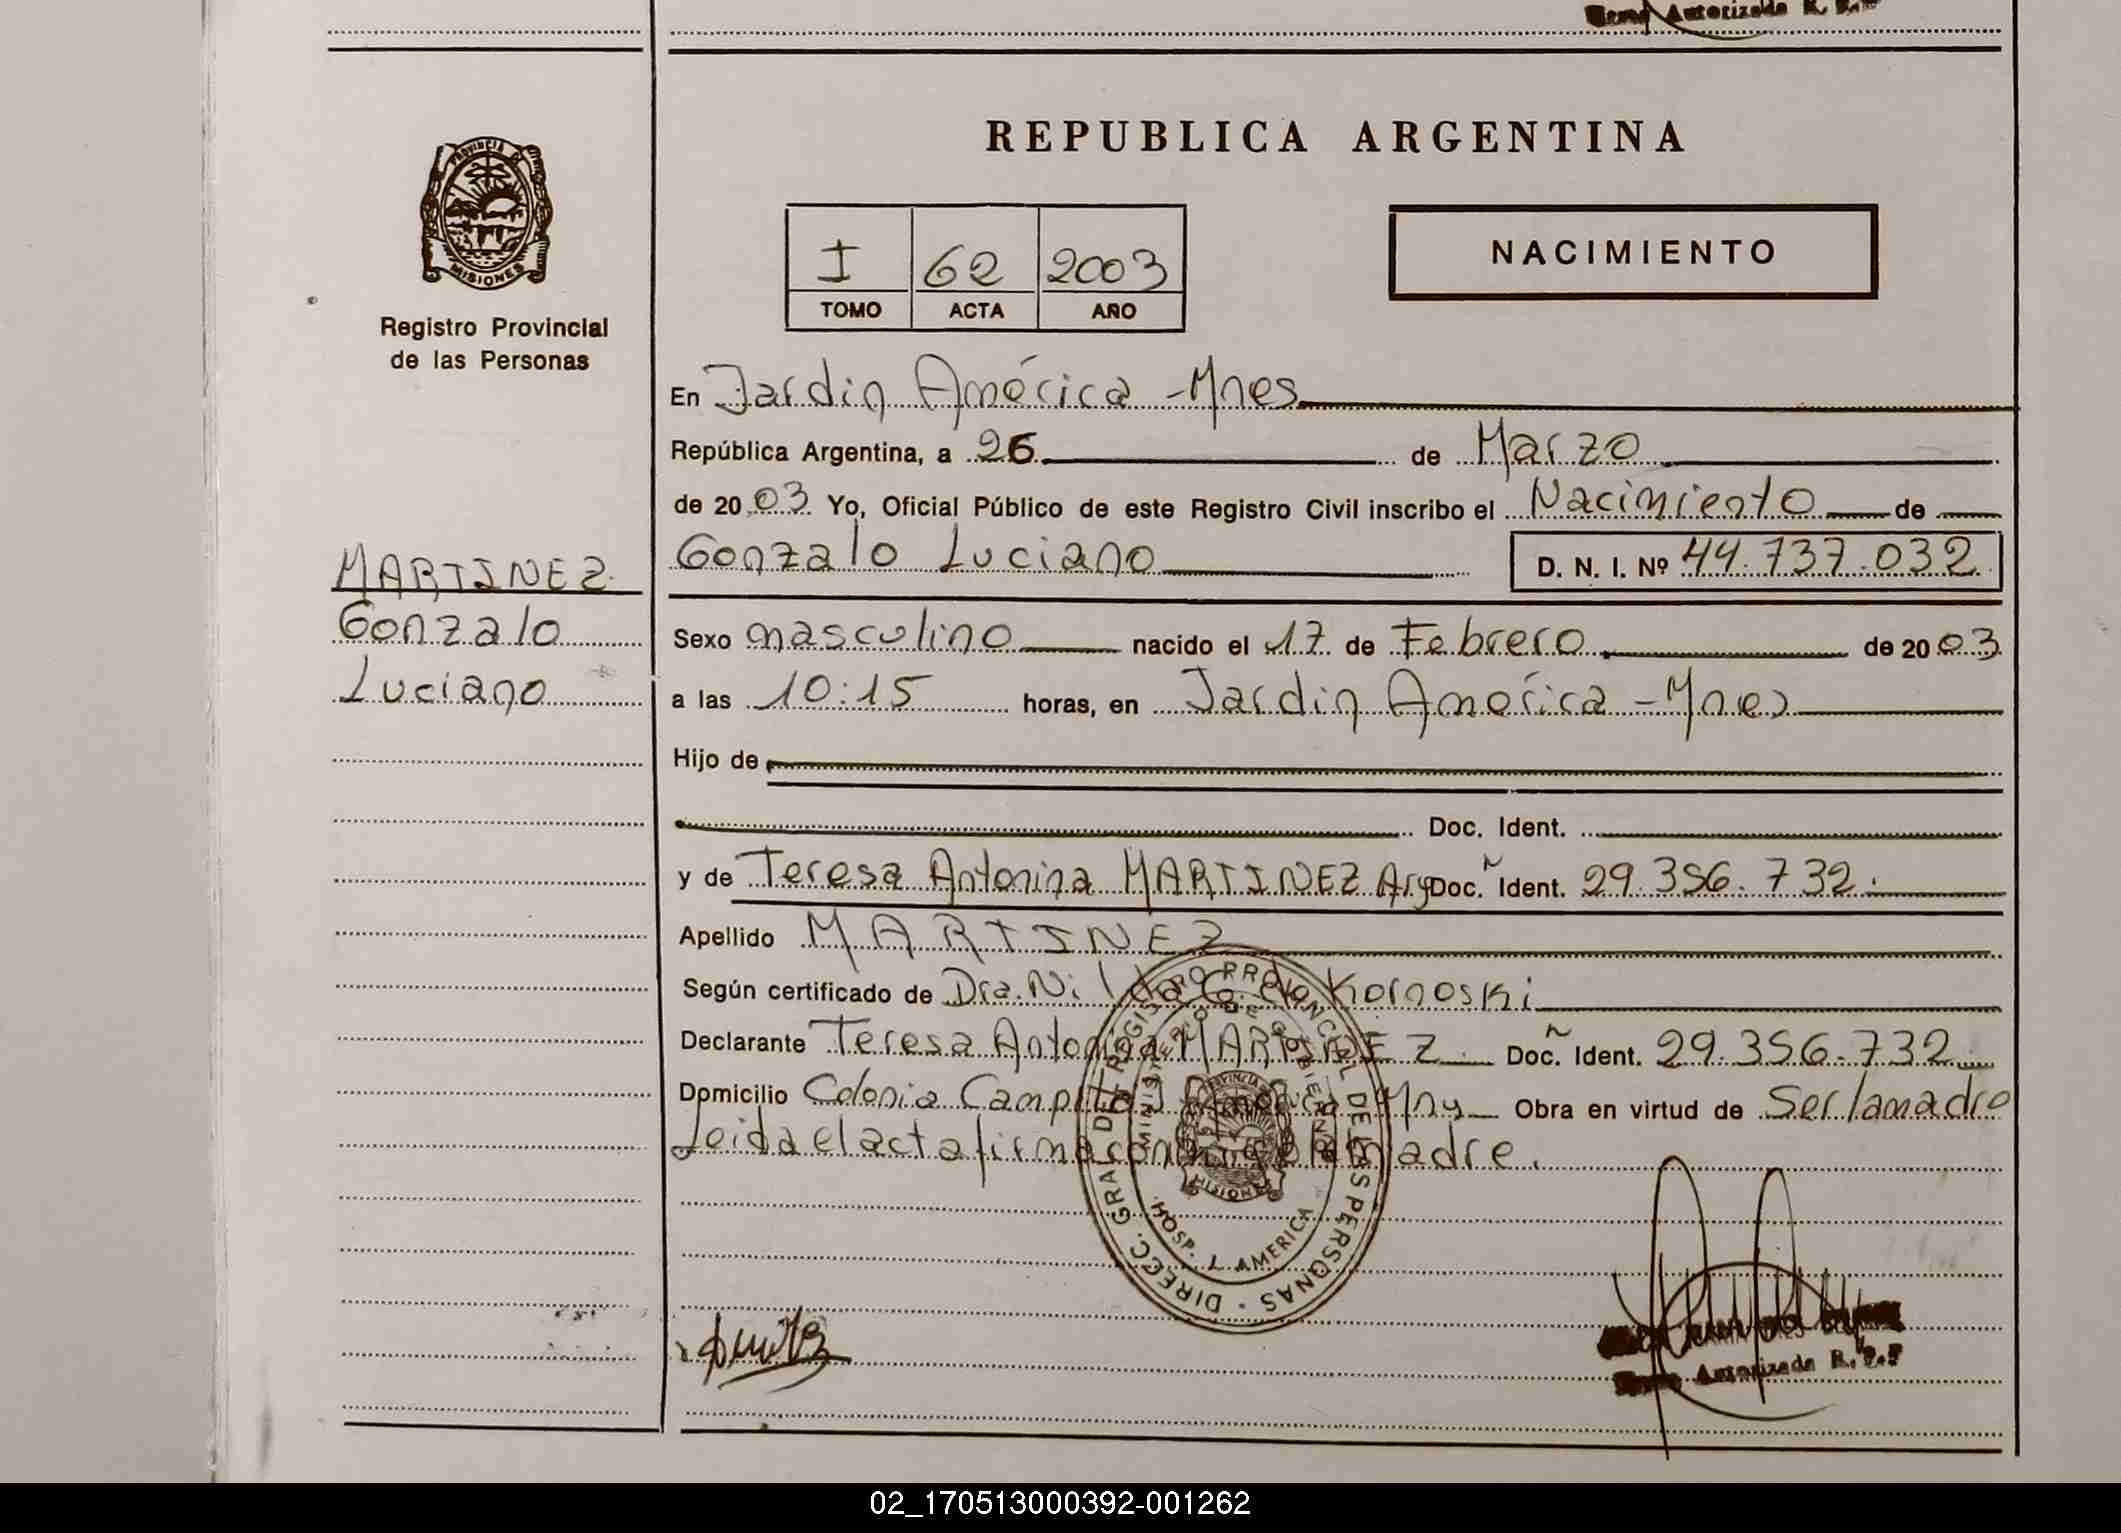 Autorizada R. P. P
PROVINCIA DE
MISIONES
Registro Provincial
de las Personas
REPUBLICA ARGENTINA
I 62 2003
TOMO ACTA AÑO
NACIMIENTO
En Jardin América - Mnes
República Argentina, a 26 de Marzo
de 2003 Yo, Oficial Público de este Registro Civil inscribo el Nacimiento de
Gonzalo Luciano D. N. I. Nº 44.737.032
MARTINEZ
Gonzalo
Luciano
Sexo masculino nacido el 17 de Febrero de 2003
a las 10:15 horas, en Jardin América - Mnes
Hijo de
Doc. Ident.
y de Teresa Antonina MARTINEZ Arg Doc. Ident. 29.356.732.
Apellido MARTINEZ
Según certificado de Dra. Nilda G. de Kornoski
Declarante Teresa Antonina MARTINEZ Doc. Ident. 29.356.732
Domicilio Colonia Campito J América Mny Obra en virtud de Ser la madre
Leida el acta firma conmigo la madre.
DIRECC. GRAL DEL REGISTRO PROVINCIAL DE LAS PERSONAS
MINISTERIO DE GOBIERNO
PROVINCIA DE
MISIONES
HOSP. J. AMERICA
Autorizada R. P. P
02_170513000392-001262